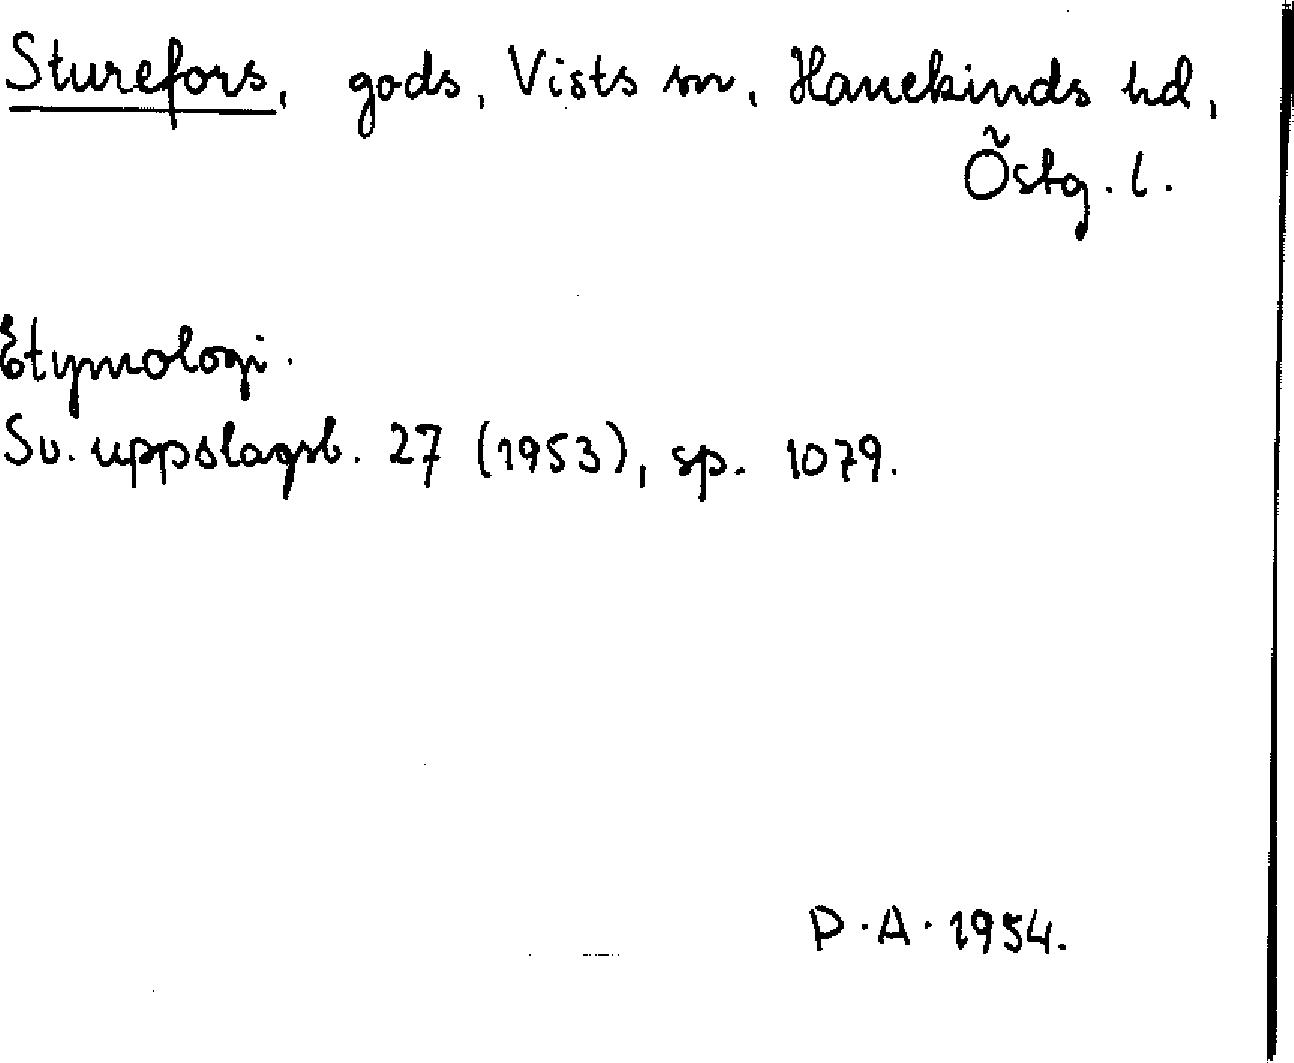 Sturefors, gods, Vists sn, Hanekinds hd,
Östg. l.
Etymologi.
Sv. uppslagsb. 27 (1953), sp. 1079.
P. A. 1954.